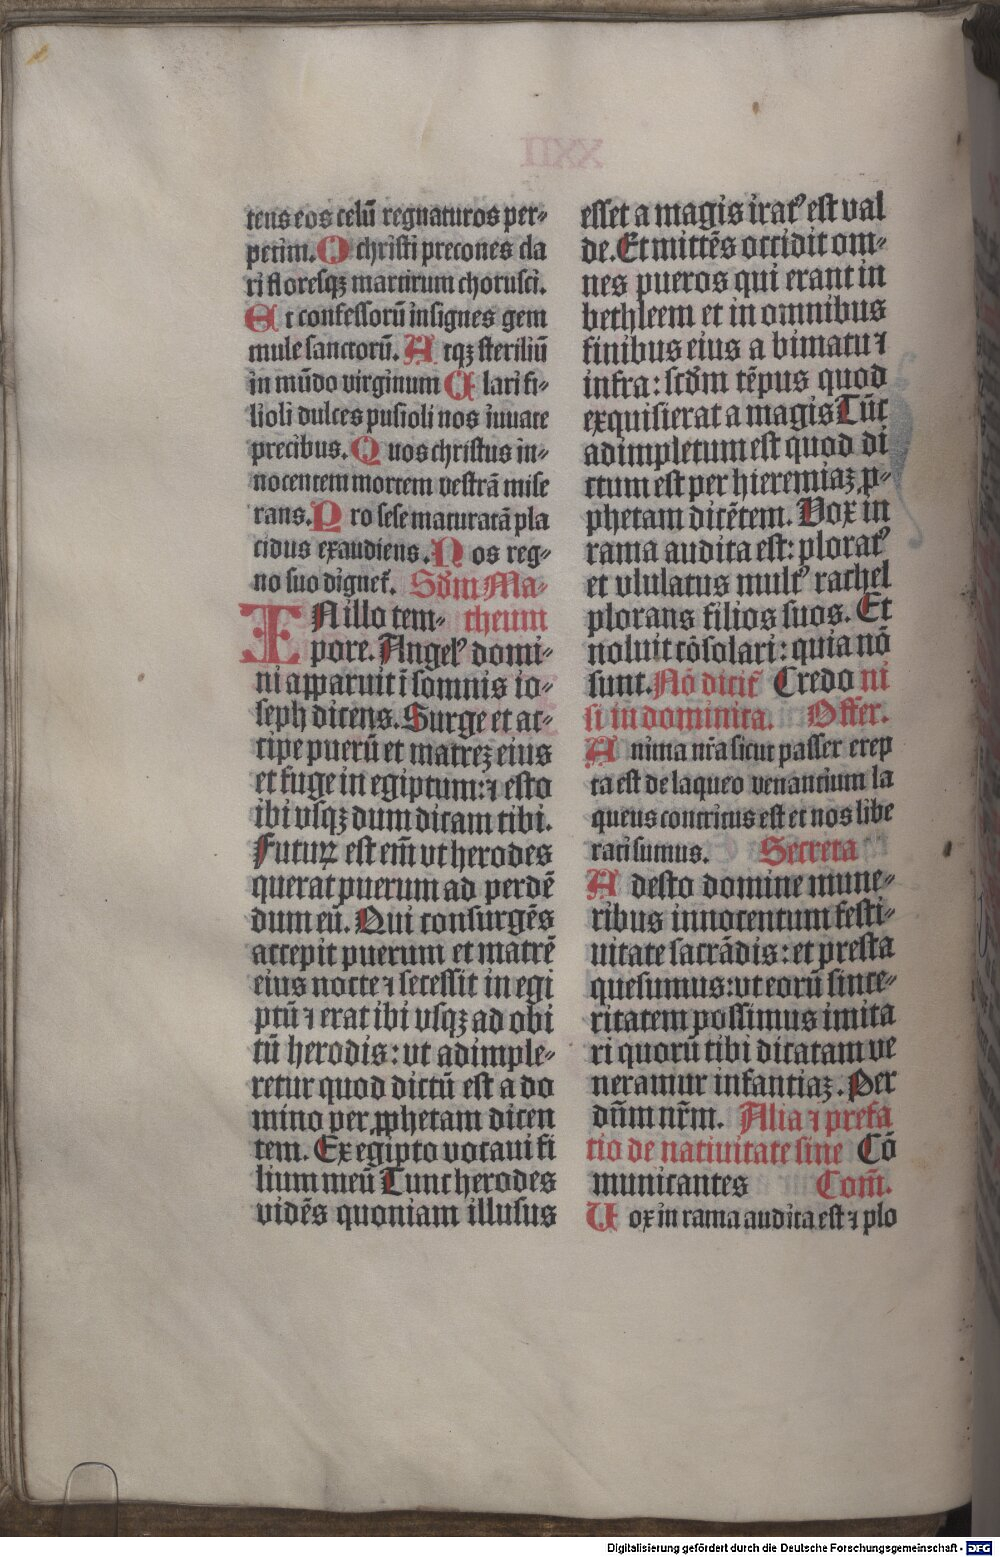 tens eos celū regnaturos per-
petim. O christi precones cla
ri floresqꝫ martirum chorusci.
Et confessorū insignes gem
mule sanctorū. Atqꝫ steriliū
in mūdo virginum Clari fi-
lioli dulces pusioli nos iuuate
precibus. Quos christus in-
nocentem mortem vestrā mise
rans. Pro sese maturatā pla
cidus exaudiens. Nos reg-
no suo dignet᷑. Scd̄m Ma-
IN illo tem- theum
pore. Angelꝰ domi-
ni apparuit ī somnis io-
seph dicens. Surge et ac-
cipe puerū et matreꝫ eius
et fuge in egiptum: ⁊ esto
ibi vsqꝫ dum dicam tibi.
Futurꝝ est em̄ vt herodes
querat puerum ad perdē
dum eū. Qui consurgēs
accepit puerum et matrē
eius nocte ⁊ secessit in egi
ptū ⁊ erat ibi vsqꝫ ad obi
tū herodis: vt adimple-
retur quod dictū est a do
mino per ꝓphetam dicen
tem. Ex egipto vocaui fi
lium meū Tunc herodes
vidēs quoniam illusus
esset a magis iratꝰ est val
de. Et mittēs occidit om-
nes pueros qui erant in
bethleem et in omnibus
finibus eius a bimatu ⁊
infra: scd̄m tēpus quod
exquisierat a magis Tūc
adimpletum est quod di
ctum est per hieremiaꝫ ꝓ-
phetam dicētem. Vox in
rama audita est: ploratꝰ
et vlulatus multꝰ rachel
plorans filios suos. Et
noluit cōsolari: quia nō
sunt. Nō dicit᷑ Credo ni
si in dominica. Offer.
Anima nr̄a sicut passer erep
ta est de laqueo venancium la
queus contritus est et nos libe
rati sumus. Secreta
Adesto domine mune-
ribus innocentum festi-
uitate sacrādis: et presta
quesumus: vt eorū since-
ritatem possimus imita
ri quorū tibi dicatam ve
neramur infantiaꝫ. Per
dūm nr̄m. Alia ⁊ prefa
tio de natiuitate sine Cō
municantes Com̄.
Vox in rama audita est ⁊ plo
Digitalisierung gefördert durch die Deutsche Forschungsgemeinschaft - DFG